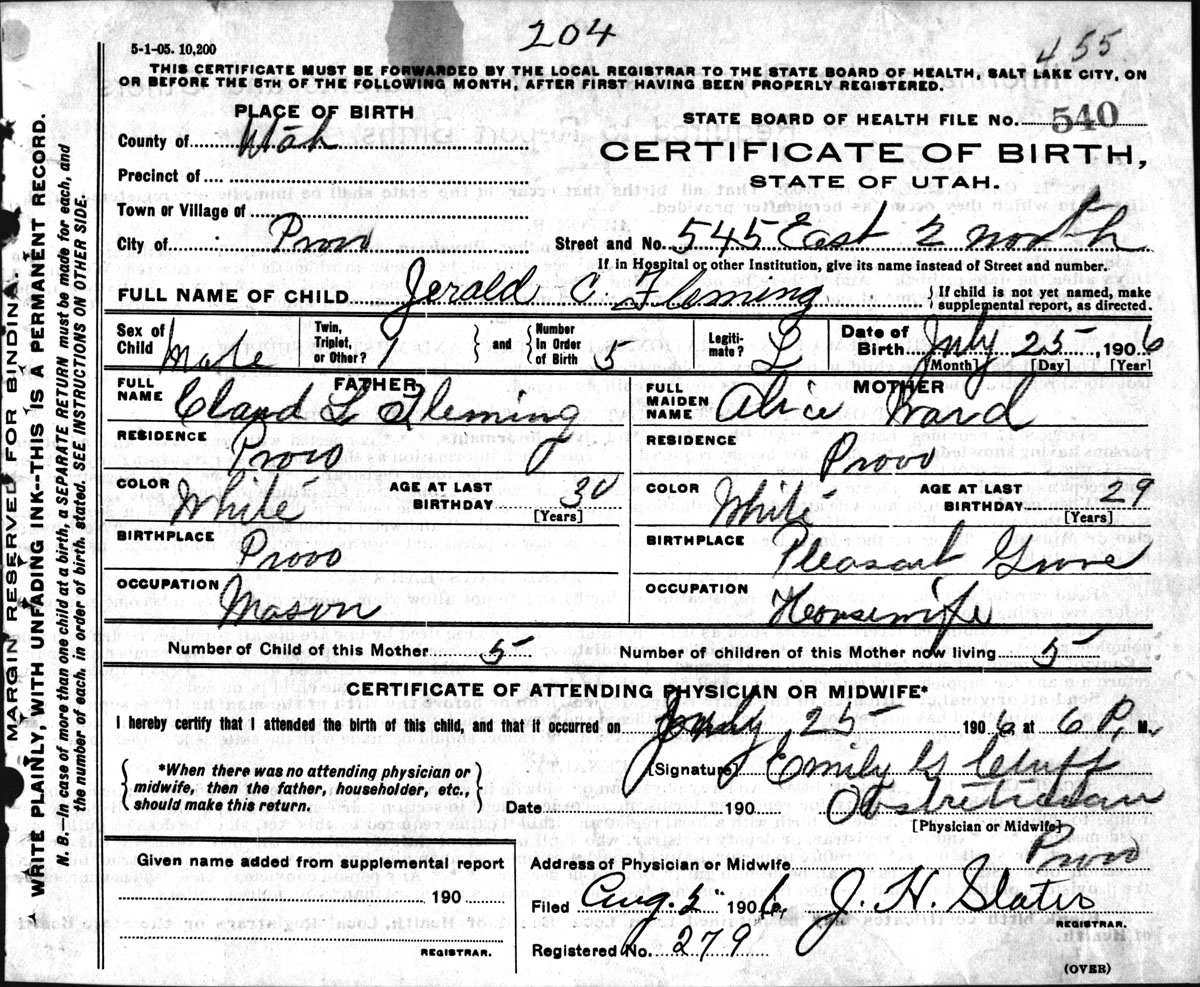 204
455
5-1-05. 10,200
THIS CERTIFICATE MUST BE FORWARDED BY THE LOCAL REGISTRAR TO THE STATE BOARD OF HEALTH, SALT LAKE CITY, ON
OR BEFORE THE 5TH OF THE FOLLOWING MONTH, AFTER FIRST HAVING BEEN PROPERLY REGISTERED.
MARGIN RESERVED FOR BINDING.
WRITE PLAINLY, WITH UNFADING INK--THIS IS A PERMANENT RECORD.
N. B.—In case of more than one child at a birth, a SEPARATE RETURN must be made for each, and
the number of each, in order of birth, stated. SEE INSTRUCTIONS ON OTHER SIDE.
PLACE OF BIRTH
STATE BOARD OF HEALTH FILE No. 540
County of Utah
CERTIFICATE OF BIRTH,
Precinct of
STATE OF UTAH.
Town or Village of
City of Provo Street and No. 545 East 2 north
If in Hospital or other Institution, give its name instead of Street and number.
FULL NAME OF CHILD Jerald C. Fleming { If child is not yet named, make supplemental report, as directed.
Sex of Child Male Twin, Triplet, or Other? } and { Number In Order of Birth 5 Legiti-mate? L Date of Birth July 25, 1906
[Month] [Day] [Year]
FATHER MOTHER
FULL NAME Claud L Fleming FULL MAIDEN NAME Alice Ward
RESIDENCE Provo RESIDENCE Provo
COLOR White AGE AT LAST BIRTHDAY 30 [Years] COLOR White AGE AT LAST BIRTHDAY 29 [Years]
BIRTHPLACE Provo BIRTHPLACE Pleasant Grove
OCCUPATION Mason OCCUPATION Housewife
Number of Child of this Mother 5 Number of children of this Mother now living 5
CERTIFICATE OF ATTENDING PHYSICIAN OR MIDWIFE*
I hereby certify that I attended the birth of this child, and that it occurred on July 25 1906, at 6 P. M.
{ *When there was no attending physician or midwife, then the father, householder, etc., should make this return. }
[Signature] Emily G Cluff
Date 190 Obstretician
[Physician or Midwife]
Given name added from supplemental report
Address of Physician or Midwife Provo
190
Filed Aug. 2 1906, J. H. Slater
REGISTRAR.
Registered No. 279
REGISTRAR.
(OVER)